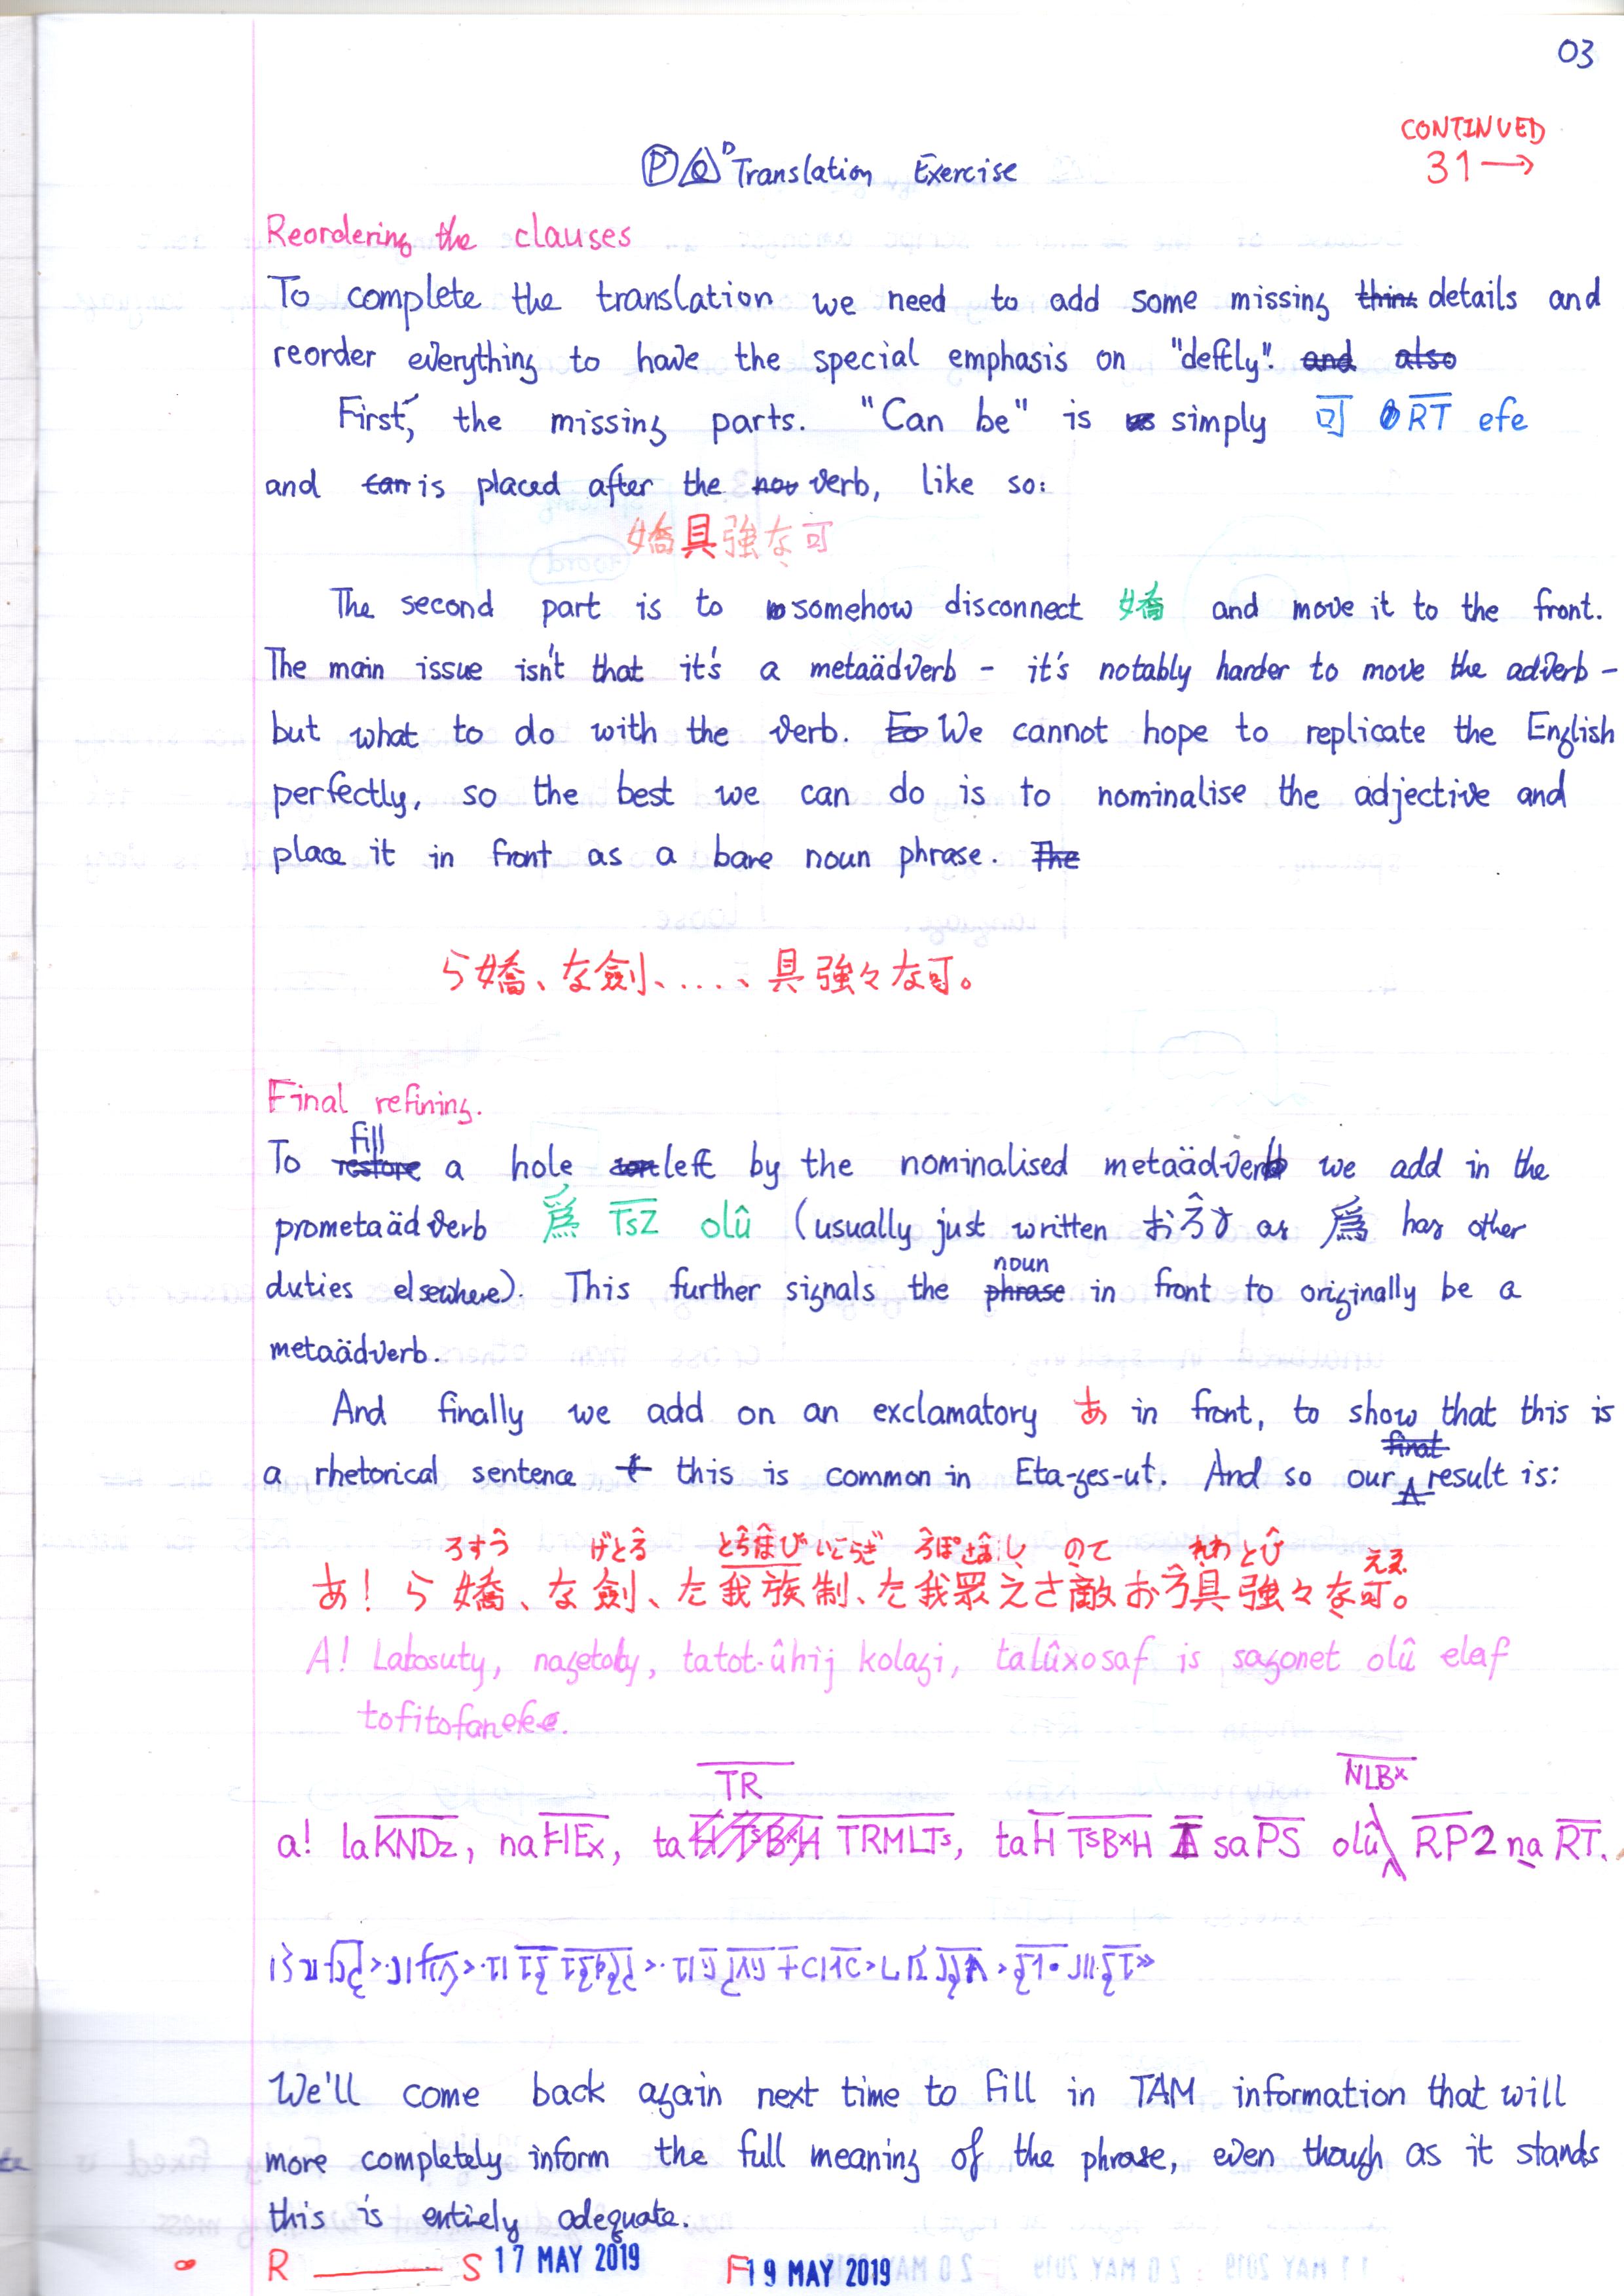 03
CONTINUED
31 →
P Q D Translation Exercise
Reordering the clauses
To complete the translation we need to add some missing details and
reorder everything to have the special emphasis on "deftly".
First, the missing parts. "Can be" is simply 可 RT efe
and is placed after the verb, like so:
嬌具強な可
The second part is to somehow disconnect 嬌 and move it to the front.
The main issue isn't that it's a metaädverb – it's notably harder to move the adverb –
but what to do with the verb. We cannot hope to replicate the English
perfectly, so the best we can do is to nominalise the adjective and
place it in front as a bare noun phrase.
ら嬌、な劍、....、具強々な可。
Final refining.
To fill a hole left by the nominalised metaädverb we add in the
prometaädverb 爲 TsZ olû (usually just written as 爲 has other
duties elsewhere). This further signals the noun in front to originally be a
metaädverb.
And finally we add on an exclamatory あ in front, to show that this is
a rhetorical sentence this is common in Eta-ges-ut. And so our result is:
あ！ら嬌、な劍、た我族制、た我眾えさ敵おゔ具強々な可。
A! Labosuty, nagetoby, tatot-ûhij kolagi, talûxosaf is sagonet olû elaf
tofitofanefe.
TR NLBx
a! laKNDz, naHEx, ta TRMLTs, taH TsBxH saPS olû RP2 na RT.
We'll come back again next time to fill in TAM information that will
more completely inform the full meaning of the phrase, even though as it stands
this is entirely adequate.
R S 17 MAY 2019 F 19 MAY 2019